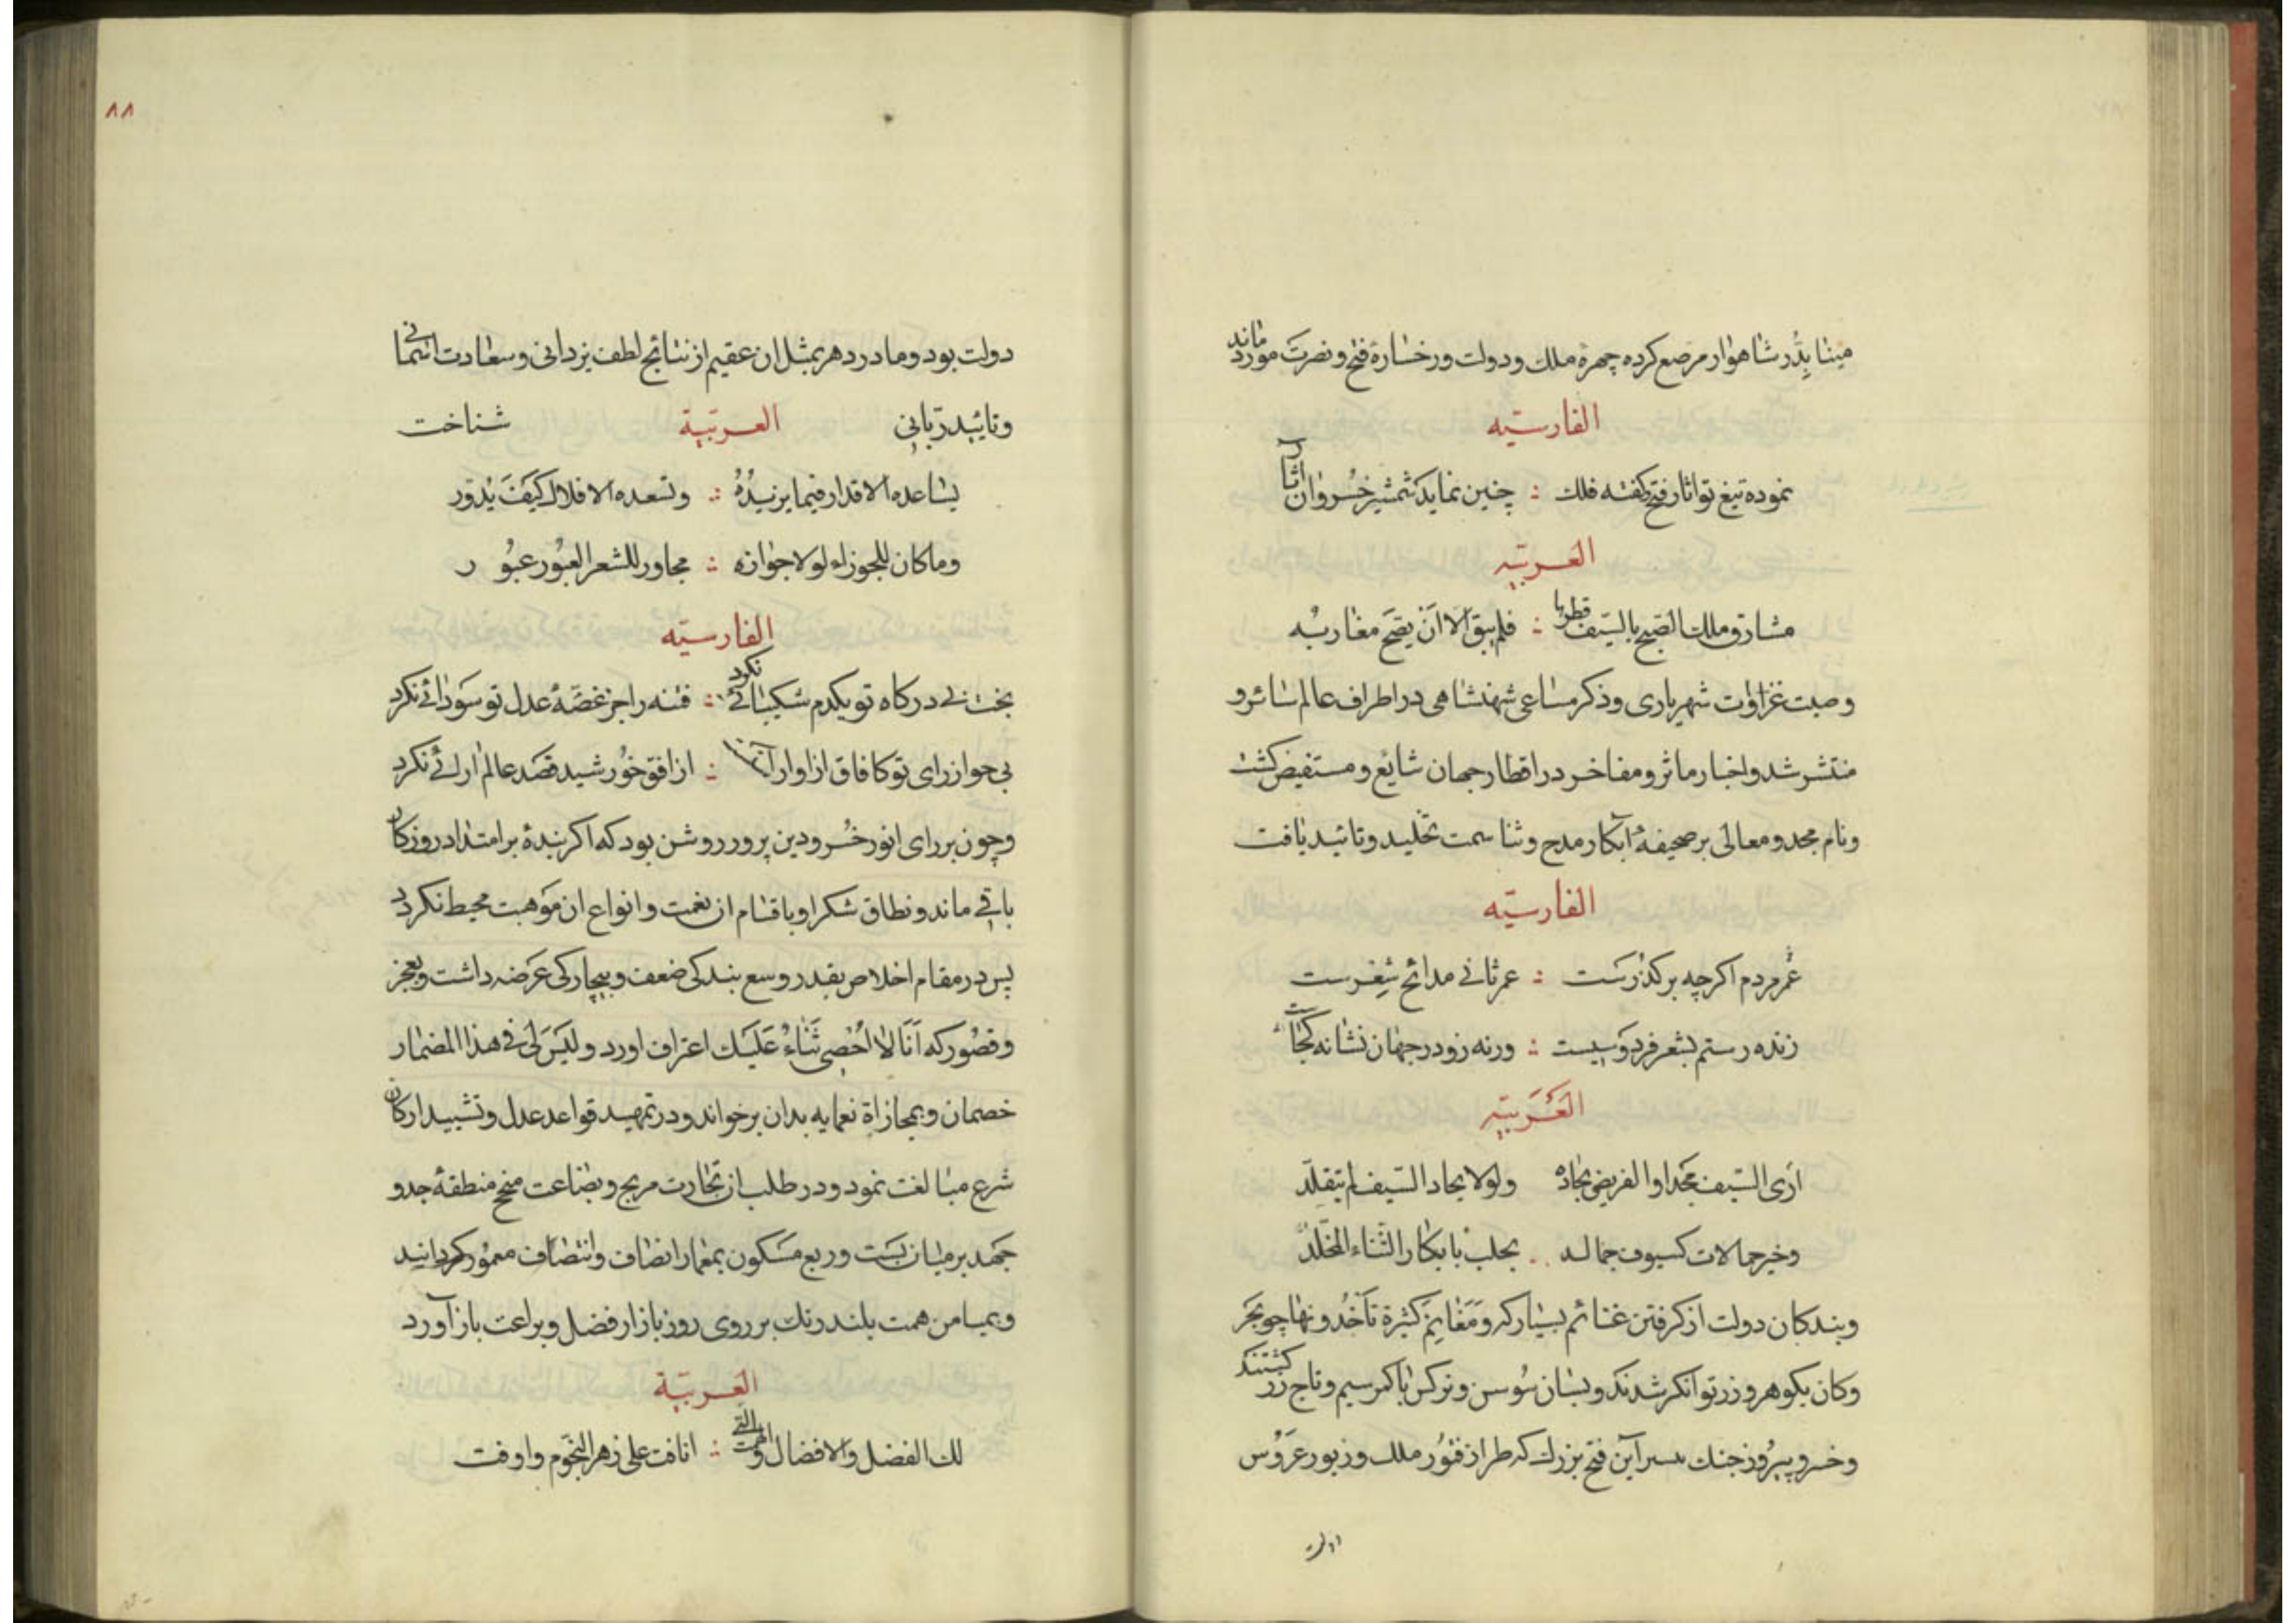 مینا بدُّر شاهوار مرصع کرده چهرهٔ ملک و دولت و رخسارهٔ فتح و نصرت مورد ماند
الفارسیّه
نموده تیغ تو اثار فتح کفته فلک ؞ چنین نماید شمشیر خسروان آثار
العربیّه
مشارق ملک الصبح بالسیف قطرها ؞ فلم یبق الا ان یصح مغاربه
وصیت غزاوات شهریاری و ذکر مساعی شهنشاهی در اطراف عالم سائر و
منتشر شد و اخبار ماثر و مفاخر در اقطار جهان شایع و مستفیض کشت
و نام مجد و معالی بر صحیفهٔ ابکار مدح و ثنا سمت تخلید و تائید یافت
الفارسیّه
عُمر مردم اکرچه بر کذرست ؞ عمر ثانی مدائح شعرست
زنده رستم بشعر فردوسیست ؞ ورنه زو در جهان نشانه کجاست
العَرَبیّه
اری السّیف مجدا والقریض نجاده ولولا نجاد السّیف لم یتقلّد
وخیر جمالات کسیوف جماله ؞ یحلب بابکار الثّناء المخلّد
وبندکان دولت از کرفتن غنائم بسیار که ومَغانِمَ کثیرة تأخذونها چو بحر
وکان بکوهر و زر توانکر شدند و بسان سوسن و نرکس با کمر سیم و تاج زر کشتند
وخسرو پیروز جنک بسر آین فتح بزرک که طراز فتور ملک و زیور عروس
دولت
٨٨
دولت بود و مادر دهر بمثل ان عقیم از نتائج لطف یزدانی و سعادت اسمانی
وتائید ربّانی العربیّة شناخت
یساعده الاقدار فیما یریدُهُ ؞ وتسعده الافلاک کیفَ یدور
وما کان للجوزاء لولا جوازه ؞ مجاور للشعر العبور عبور
الفارسیّه
بخت بی درکاه تو یکدم شکیبائی نکرد ؞ فتنه را جز غصّهٔ عدل تو سودائی نکرد
بی جواز رای تو کافاق ازاوار ؞ از افق خورشید قصد عالم ارائی نکرد
وچون بر رای انور خسرو دین پرور روشن بود که اکر بندهٔ بر امتداد روزکار
باقی ماند و نطاق شکر او باقسام ان نعمت و انواع ان موهبت محیط نکردد
پس در مقام اخلاص بقدر وسع بندکی ضعف و بیچارکی عرضه داشت و بعجز
وقصور که اَنَا لا اُحْصی ثَناءً عَلَیک اعتراف اورد و لیس لی فی هذا المضمار
خصمان و بمجازاة نعمایه بدان برخواند و در تمهید قواعد عدل و تشیید ارکان
شرع مبالغت نمود و در طلب ان تجارت مربح و بضاعت منجح منطقهٔ جد و
جهد بر میان بست و ربع مسکون بمعمار انصاف و انتصاف معمور کردانید
و بمیامن همت بلند رنک بر روی روز بازار فضل و براعت باز آورد
العربیّة
لک الفضل والافضال والهمت التی ؞ انافت علی زهر النجوم واوفت